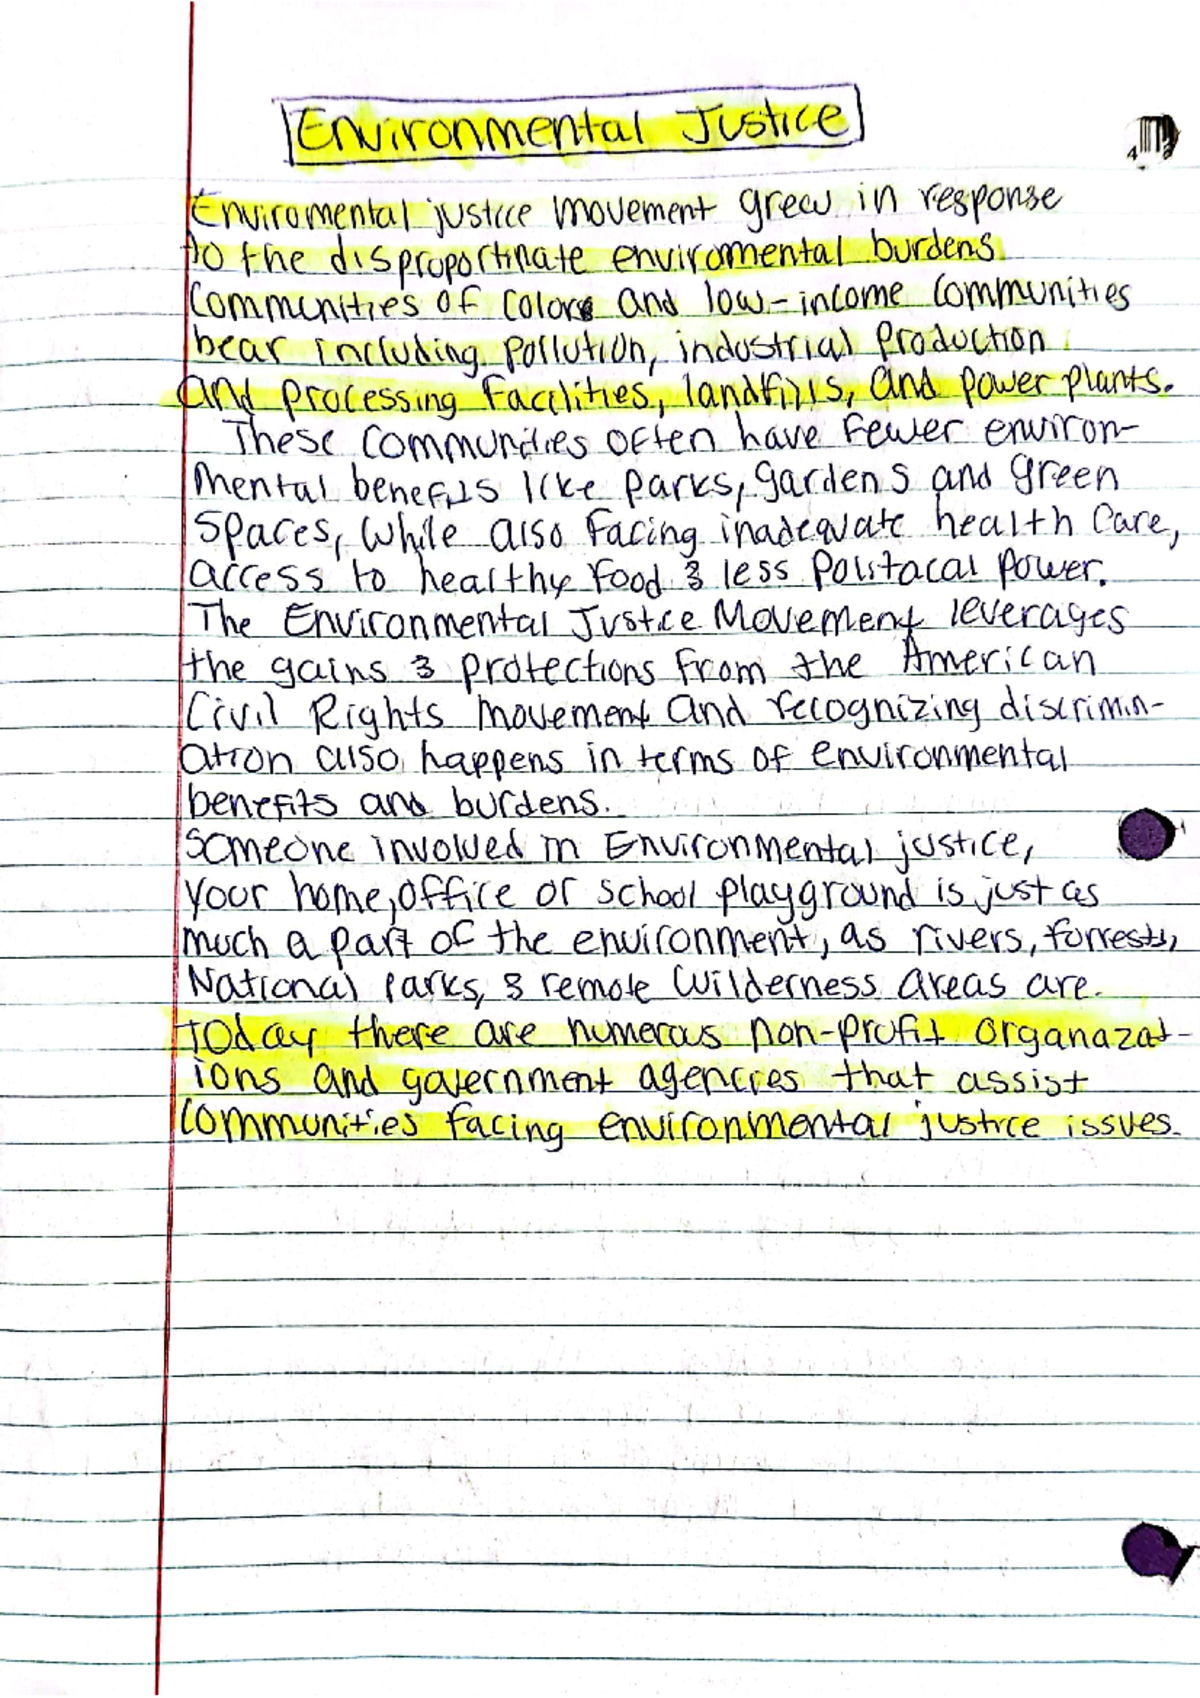 Environmental Justice
Enviromental justice movement grew in response
to the disproportinate enviromental burdens
communities of color and low-income communities
bear including pollution, industrial production
and processing facilities, landfills, and power plants.
These communities often have fewer environ-
mental benefits like parks, gardens and green
spaces, while also facing inadequate health care,
access to healthy food & less politacal power.
The Environmental Justice Movement leverages
the gains & protections from the American
Civil Rights movement and recognizing discrimin-
ation also happens in terms of environmental
benefits and burdens.
Someone involved in Environmental justice,
your home, office or school playground is just as
much a part of the environment, as rivers, forrests,
National parks, & remote wilderness areas are.
Today there are numerous non-profit organazat-
ions and government agencies that assist
communities facing environmental justice issues.